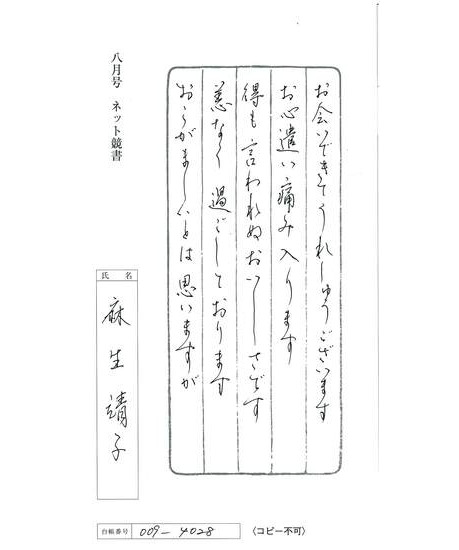 お会いできてうれしゅうございます
お心遣い痛み入ります
得も言われぬおいしさです
恙なく過ごしております
おこがましいとは思いますが
八月号 ネット競書
氏名
麻生靖子
台帳番号 009-4028
〈コピー不可〉